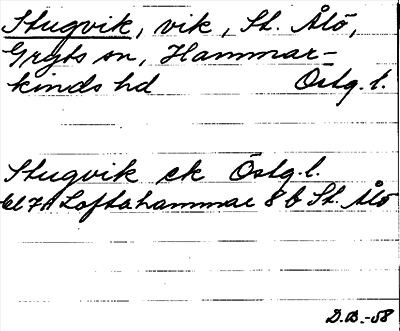 Stugvik, vik, St. Ålö,
Gryts sn, Hammar-
kinds hd Östg. l.
Stugvik ek Östg. l.
bl 7A Loftahammar 8b St. Ålö
D.B.-58